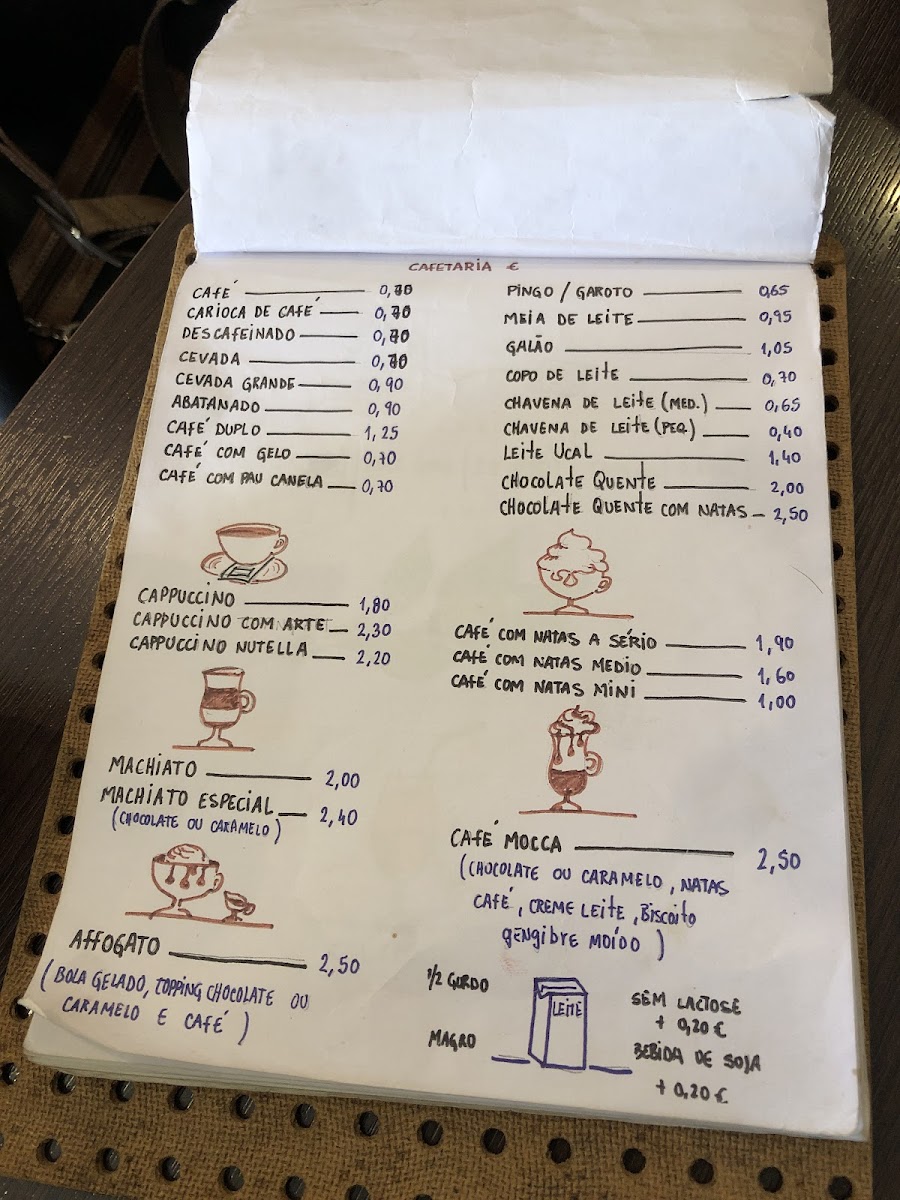 CAFETARIA €
CAFÉ 0,70
CARIOCA DE CAFÉ 0,70
DESCAFEINADO 0,70
CEVADA 0,70
CEVADA GRANDE 0,90
ABATANADO 0,90
CAFÉ DUPLO 1,25
CAFÉ COM GELO 0,70
CAFÉ COM PAU CANELA 0,70
CAPPUCCINO 1,80
CAPPUCCINO COM ARTE 2,30
CAPPUCCINO NUTELLA 2,20
MACHIATO 2,00
MACHIATO ESPECIAL 2,40
(CHOCOLATE OU CARAMELO)
AFFOGATO 2,50
(BOLA GELADO, TOPPING CHOCOLATE OU
CARAMELO E CAFÉ)
PINGO / GAROTO 0,65
MEIA DE LEITE 0,95
GALÃO 1,05
COPO DE LEITE 0,70
CHAVENA DE LEITE (MED.) 0,65
CHAVENA DE LEITE (PEQ.) 0,40
LEITE UCAL 1,40
CHOCOLATE QUENTE 2,00
CHOCOLATE QUENTE COM NATAS 2,50
CAFÉ COM NATAS A SÉRIO 1,90
CAFÉ COM NATAS MEDIO 1,60
CAFÉ COM NATAS MINI 1,00
CAFÉ MOCCA 2,50
(CHOCOLATE OU CARAMELO, NATAS
CAFÉ, CREME LEITE, BISCOITO
GENGIBRE MOÍDO)
1/2 GORDO
MAGRO
LEITE
SEM LACTOSE
+ 0,20 €
BEBIDA DE SOJA
+ 0,20 €